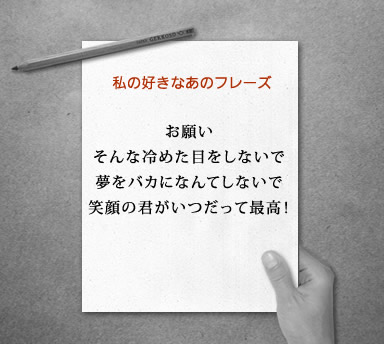 私の好きなあのフレーズ
お願い
そんな冷めた目をしないで
夢をバカになんてしないで
笑顔の君がいつだって最高!